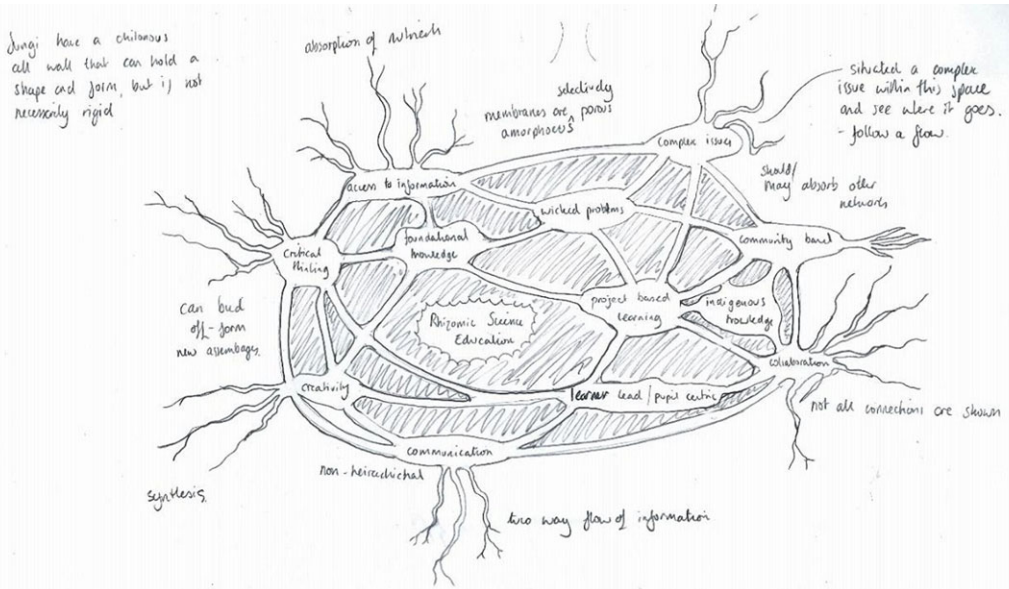 fungi have a chitonous
cell wall that can hold a
shape and form, but is not
necessarily rigid
absorption of nutrients
selectively
membranes are porous
amorphoeus
situated a complex
issue within this space
and see where it goes.
- follow a flow.
complex issues
should/
may absorb other
networks
access to information
wicked problems
community based
foundational
knowledge
critical
thinking
project based
learning
indigenous
knowledge
can bud
off - form
new assembages.
Rhizomic Science
Education
collaboration
creativity
learner lead / pupil centric
not all connections are shown
communication
non-heirachichal
synthesis.
two way flow of information